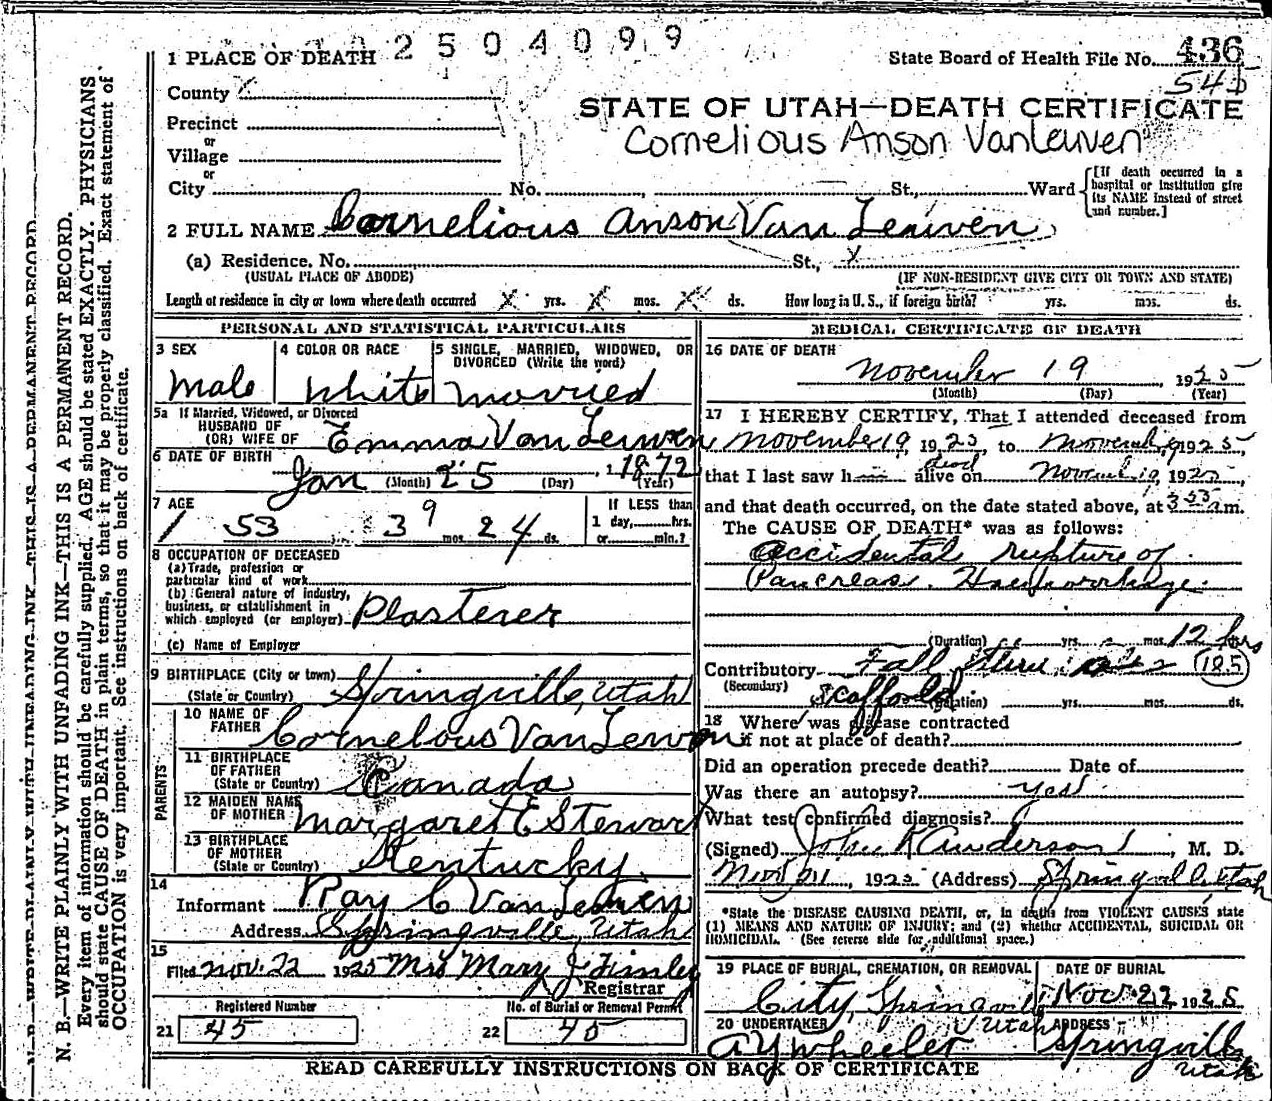 2504099
1 PLACE OF DEATH
State Board of Health File No. 436
545
County X
STATE OF UTAH—DEATH CERTIFICATE
Precinct
Cornelious Anson VanLeuven
or
Village
or
City No. St., Ward
[If death occurred in a hospital or institution give its NAME instead of street and number.]
2 FULL NAME Cornelious Anson Van Leuven
(a) Residence, No. St., X
(USUAL PLACE OF ABODE) (IF NON-RESIDENT GIVE CITY OR TOWN AND STATE)
Length of residence in city or town where death occurred X yrs. X mos. X ds. How long in U. S., if foreign birth? yrs. mos. ds.
PERSONAL AND STATISTICAL PARTICULARS
3 SEX
Male
4 COLOR OR RACE
White
5 SINGLE, MARRIED, WIDOWED, OR DIVORCED (Write the word)
Married
5a If Married, Widowed, or Divorced
HUSBAND OF
(OR) WIFE OF Emma Van Leuven
6 DATE OF BIRTH
Jan (Month) 25 (Day) , 1 1872 (Year)
7 AGE
53 3 9 mos. 24 ds.
If LESS than
1 day, hrs.
or min.?
8 OCCUPATION OF DECEASED
(a) Trade, profession or
particular kind of work
(b) General nature of industry,
business, or establishment in
which employed (or employer) Plasterer
(c) Name of Employer
9 BIRTHPLACE (City or town)
(State or Country) Springville, Utah
PARENTS
10 NAME OF
FATHER Cornelous Van Leuven
11 BIRTHPLACE
OF FATHER
(State or Country) Canada
12 MAIDEN NAME
OF MOTHER Margaret E Stewart
13 BIRTHPLACE
OF MOTHER
(State or Country) Kentucky
14
Informant Ray C Van Leuven
Address Springville, Utah
15
Filed Nov. 22 1925 Mrs Mary J Finley
Registrar
Registered Number
21 45
No. of Burial or Removal Permit
22 45
MEDICAL CERTIFICATE OF DEATH
16 DATE OF DEATH
November 19, 1925
(Month) (Day) (Year)
17 I HEREBY CERTIFY, That I attended deceased from
November 19, 1925, to November 19 1925,
that I last saw h dead alive on November 19, 1925,
and that death occurred, on the date stated above, at 3 55 m.
The CAUSE OF DEATH* was as follows:
Accidental rupture of
Pancreas. Haemorrhage.
(Duration) yrs. mos. 12 hrs
Contributory Fall thru 185
(Secondary) scaffold (Duration) yrs. mos. ds.
18 Where was disease contracted
if not at place of death?
Did an operation precede death? Date of
Was there an autopsy? yes
What test confirmed diagnosis?
(Signed) John K Anderson, M. D.
Nov 21, 1925 (Address) Springville Utah
*State the DISEASE CAUSING DEATH, or, in deaths from VIOLENT CAUSES state
(1) MEANS AND NATURE OF INJURY; and (2) whether ACCIDENTAL, SUICIDAL OR
HOMICIDAL. (See reverse side for additional space.)
19 PLACE OF BURIAL, CREMATION, OR REMOVAL
City, Springville Utah
DATE OF BURIAL
Nov 22 1925
20 UNDERTAKER
A Y Wheeler
ADDRESS
Springville Utah
READ CAREFULLY INSTRUCTIONS ON BACK OF CERTIFICATE
N. B.—WRITE PLAINLY WITH UNFADING INK—THIS IS A PERMANENT RECORD.
Every item of information should be carefully supplied. AGE should be stated EXACTLY. PHYSICIANS
should state CAUSE OF DEATH in plain terms, so that it may be properly classified. Exact statement of
OCCUPATION is very important. See instructions on back of certificate.